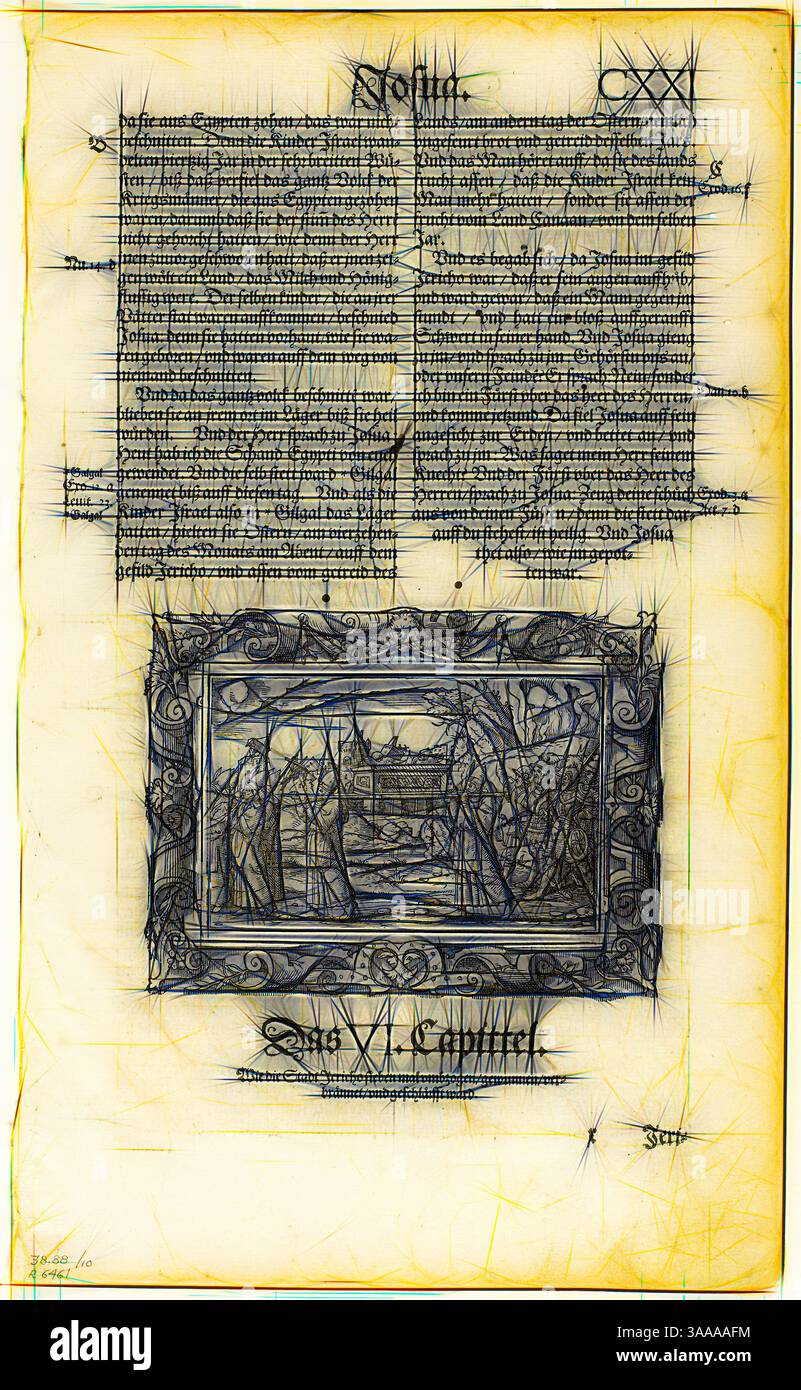 Josua. CXXI
da sie aus Egypten zohen / das war nicht
B
beschnitten. Denn die Kinder Israel wan-
delten viertzig Jar in der
sten / biß daß das gantz Volck der
Kriegsmänner / die aus Egypten gezohen
waren / darumb daß sie der stim des Herrn
nicht gehorcht hatten / wie denn der Herr
Nu. 14. d
jnen zuuor geschworen hatt / daß er jnen zei-
gen wölt ein Land / das Milch vnd Hönig
flussig were. Der selben kinder / die an jrer
Vätter stat waren auffkommen / beschneid
Josua / denn sie hatten vorhaut / wie sie wa-
ren geboren / vnd waren auff dem weg von
niemand beschnitten.
Vnd da das gantz volck beschnitte war /
blieben sie an jrem ort im Läger / biß sie heil
würden. Vnd der Herr sprach zu Josua /
Heut hab ich die Schand Egypti von euch
* Galgal
gewendet. Vnd die selb stett ward * Gilgal
genennet biß auff diesen tag. Vnd als die
Kinder Israel also in * Gilgal das Läger
* Galgal
hatten / hielten sie Ostern / am viertzehen-
den tag des Monats am Abent / auff dem
gefild Jericho / vnd assen vom getreid des
Lands / am andern tag der Ostern /
vngeseurt brot vnd getreid desselben Jars.
Vnd das Man höret auff / da sie des lands
C
frucht assen / daß die Kinder Israel kein
Exod. 16. f
Man mehr hatten / sonder sie assen der
frucht vom Land Canaan / von dem selben
Jar.
Vnd es begab sich / da Josua im gefild
Jericho war / daß er sein augen auffhub /
vnd ward gewar / daß ein Mann gegen jm
stundt / vnd hatt ein bloß auffgerauft
Schwert in seiner hand. Vnd Josua gieng
zu jm / vnd sprach zu jm / Gehörstu vns an /
oder vnsern Feinde? Er sprach / Nein / sonder
ich bin ein Fürst vber das heer des Herren /
Dan. 10. b
vnd komme jetzund. Da fiel Josua auff sein
angesicht zur Erden / vnd bettet an / vnd
sprach zu jm / Was saget mein Herr seinem
Knecht? Vnd der Fürst vber das Heer des
Herren / sprach zu Josua / Zeug deine schüch
Exod. 3. a
aus von deinen Füssen / denn die stett dar-
Act. 7. d
auff du stehest / ist heilig. Vnd Josua
thet also / wie jm gepot-
ten war.
Das VI. Capittel.
Wie die Stadt Jericho sieben mal vmbzogen / gewunnen / ver-
brännet / vnd geschläifft ward.
x Jeri-
38.88/10
R 6461
alamy
Image ID: 3AAAAFM
www.alamy.com